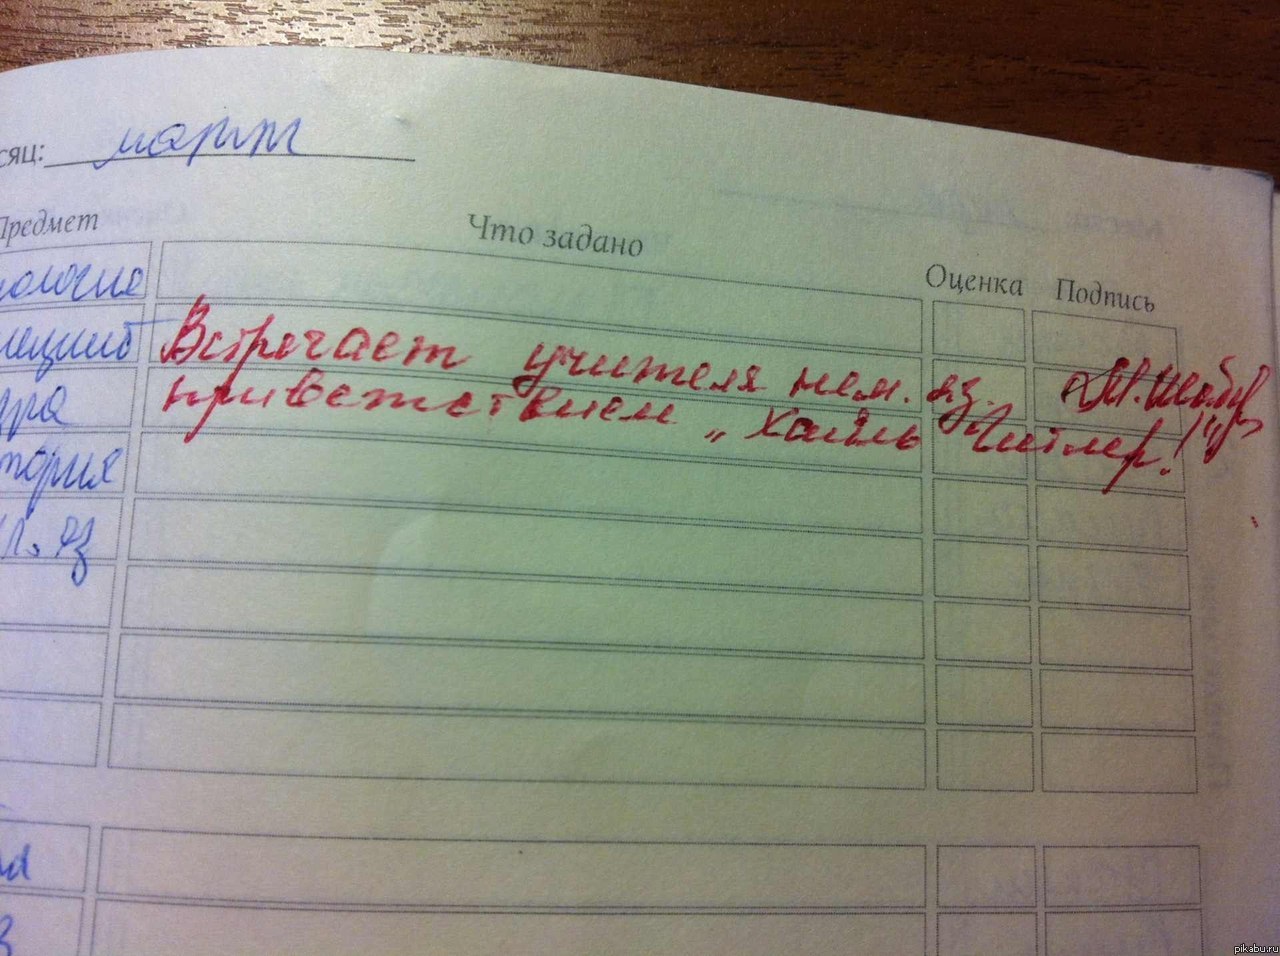 сяц: март
Предмет Что задано Оценка Подпись
ология
Встречает учителя нем. яз.
приветствием „Хайль Гитлер!"
тория
яз
pikabu.ru